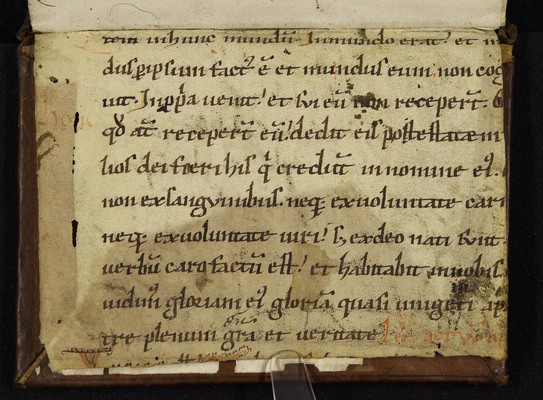 tem in hunc mundū. In mundo erat. et m
dus p ipsum fact' ē et mundus eum non cog
uit. In ppia uenit. et sui eū non recepert̄.
qđ aūt recepert̄ eū. dedit eis potestatem
lios dei fieri his q̄ credūt in nomine ei'.
non ex sanguinibus. neq; ex uoluntate carn
neq; ex uoluntate uiri. s; ex deo nati sunt.
uerbū caro factū est. et habitabit in nobis.
uidim' gloriam ei' gloriā quasi unigeti a p
tre plenum grā et ueritate